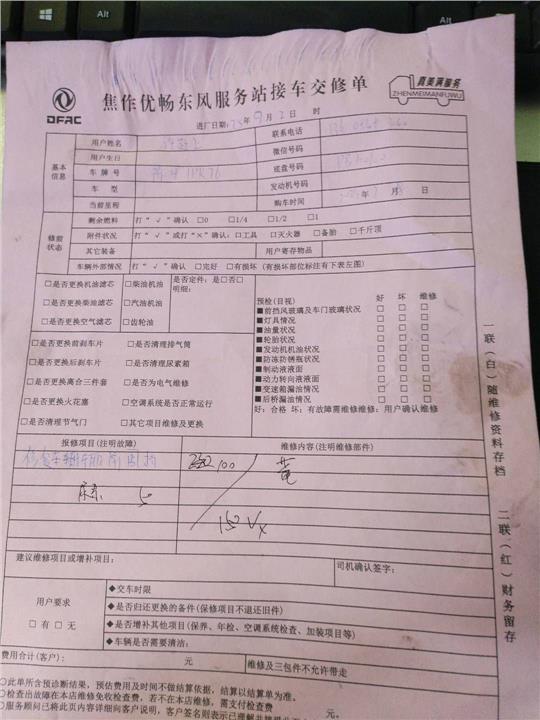 Alt
DFAC
焦作优畅东风服务站接车交修单
真美满服务
ZHENMEIMANFUWU
进厂日期: 年 9 月 2 日 时
基本信息
用户姓名
联系电话
用户生日
微信号码
车牌号
底盘号码
车型
发动机号码
当前里程
购车时间 年 月 日
修前状态
剩余燃料 打“√”确认 □0 □1/4 □1/2 □1
附件状况 打“√”或打“×”确认:□工具 □灭火器 □备胎 □千斤顶
其它装备 用户寄存物品
车辆外部情况 打“√”确认 □完好 □有损坏(有损坏部位标注有下表左图)
□是否更换机油滤芯 □柴油机油 是否定件:是□否□
明细:
□是否更换柴油滤芯 □汽油机油
□是否更换空气滤芯 □齿轮油
□是否更换前刹车片 □是否清理排气筒
□是否更换后刹车片 □是否清理尿素箱
□是否更换离合三件套 □是否为电气维修
□是否更换火花塞 □空调系统是否正常运行
□是否清理节气门 □其它项目维修及更换
预检(目视) 好 坏 维修
■前挡风玻璃及车门玻璃状况 □ □ □
■灯具情况 □ □ □
■油量状况 □ □ □
■轮胎状况 □ □ □
■发动机机油状况 □ □ □
■防冻防锈瓶状况 □ □ □
■制动液液面 □ □ □
■动力转向液液面 □ □ □
■变速箱漏油情况 □ □ □
■后桥漏油情况 □ □ □
好:合格 坏:有故障需维修维修:用户确认维修
报修项目(注明故障) 维修内容(注明维修部件)
100
150
建议维修项目或增补项目:
司机确认签字:
用户要求
□有□无
◆交车时限
◆是否归还更换的备件(保修项目不退还旧件)
◆是否增补其他项目(保养、年检、空调系统检查、加装项目等)
◆车辆是否需要清洁:
费用合计(客户): 元
维修及三包件不允许带走
○此单所含预诊断结果,预估费用及时间不做结算依据,结算以结算单为准。
○检查出故障在本店维修免收检查费,若不在本店维修,需支付检查费
○服务顾问已将此页内容详细向客户说明,客户签名则表示已理解并接
一联(白)随维修资料存档
二联(红)财务留存